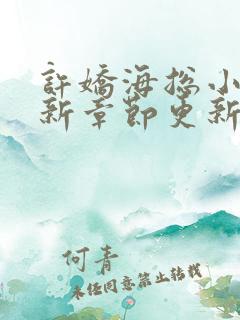 許嬌海棕小
新章節更新
何青
未經同意禁止轉載